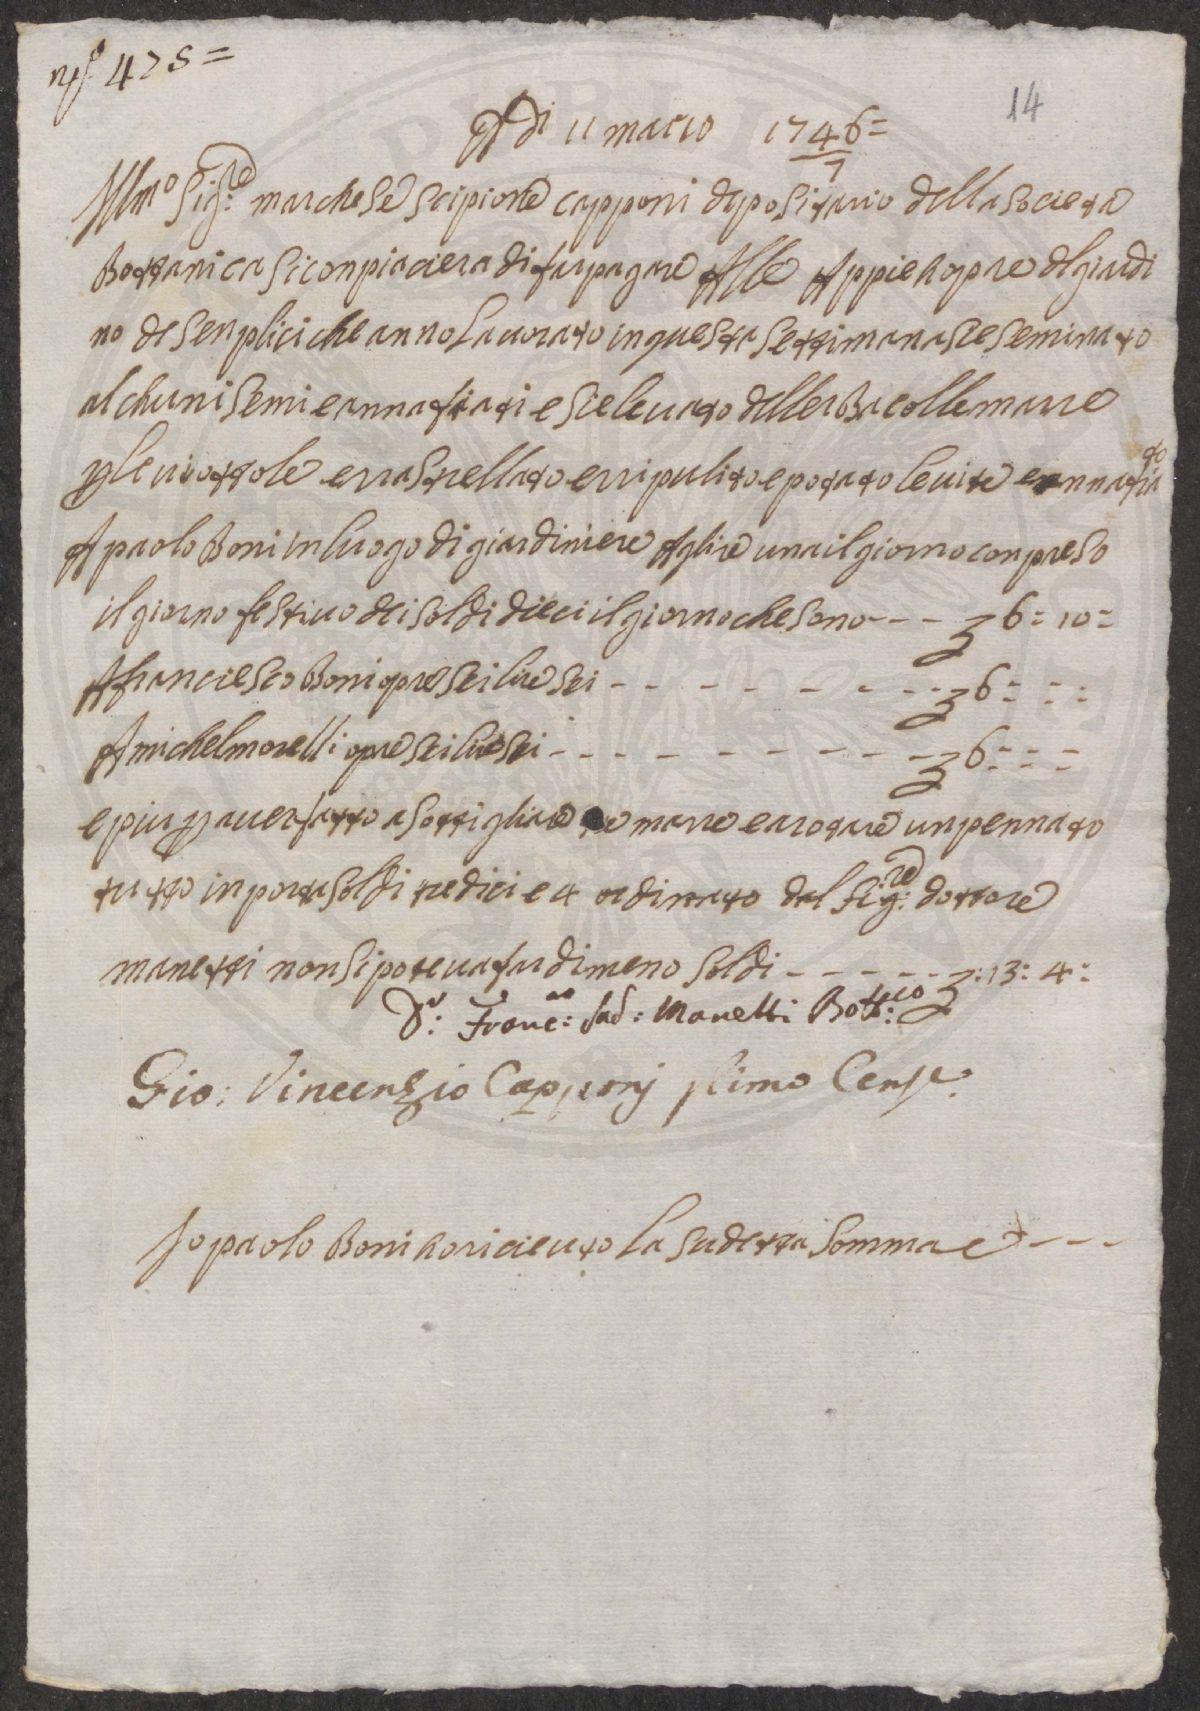 nº 475=
14
Adi 11 marzo 1746=
7
Illmo Sigre marchese scipione capponi depositario della societa
Bottanica si conpiaciera di far pagare Alle Appie hopre del giardi
no de senplici che anno Lauorato in questa settimana sie seminato
alchuni semi e annafiati e sie leuato dellerba colle marre
p le uiottole e rrastrellato e rripulito e potato le uite e annafia
to
A paolo Boni in luogo di giardiniere A lire una il giorno conpreso
il giorno festiuo dei soldi dieci il giorno che sono - - - £ 6: 10=
A franciesco Boni opre sei lire sei - - - - - - - - £ 6= - -:
A michel morelli opre sei lire sei - - - - - - - - £ 6= = =
e piu p auer fatto asottigliare le marre e arotare un pennato
tutto in porta soldi tredici e 4 ordinato dal Sigre: dottore
manetti non si poteua far di meno soldi - - - - - £ :13: 4:
Dr: Francco: Sad: Manetti Bottco
Gio: Vincenzio Capponj primo Cens.
Io paolo Boni ho riceuto La sudetta somma - - -